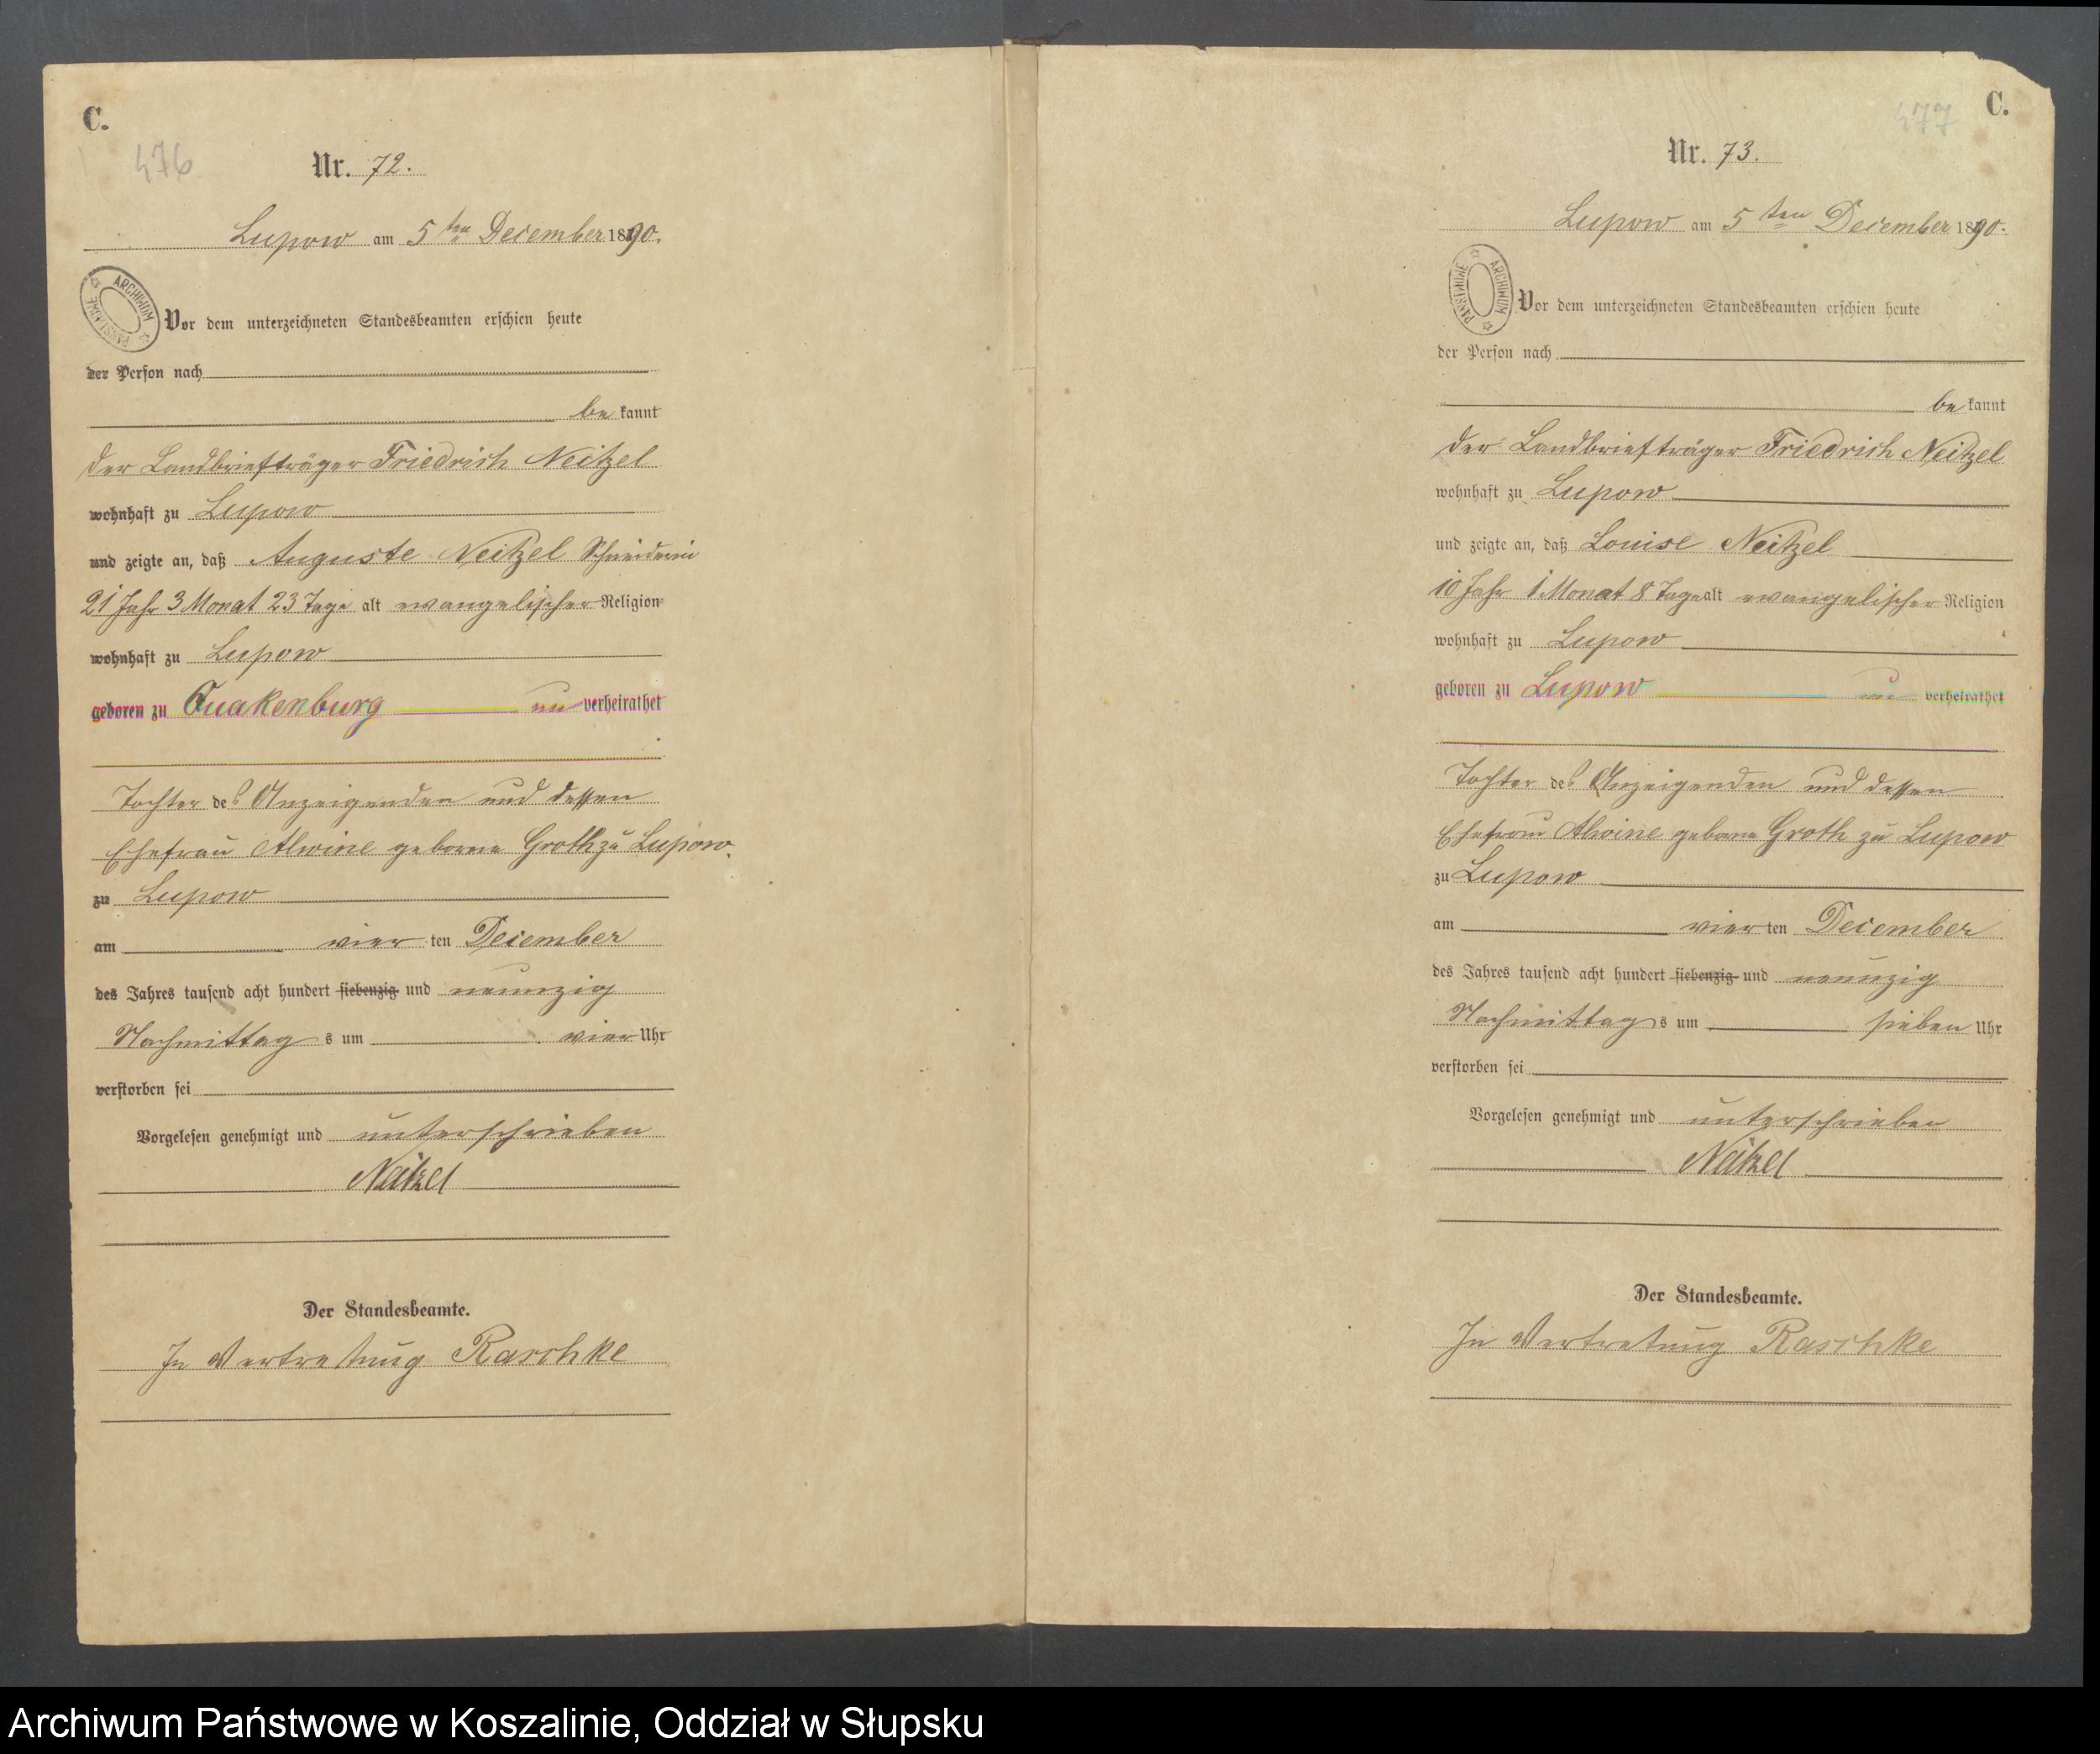 C.
476
Nr. 72.
Lupow am 5ten December 1890.
ARCHIWUM PAŃSTWOWE
Vor dem unterzeichneten Standesbeamten erschien heute
der Person nach
be kannt
der Landbriefträger Friedrich Neitzel
wohnhaft zu Lupow
und zeigte an, daß Auguste Neitzel Schneiderin
21 Jahr 3 Monat 23 Tage alt evangelischer Religion
wohnhaft zu Lupow
geboren zu Quakenburg un verheirathet
Tochter des Anzeigenden und dessen
Ehefrau Alwine geborne Groth zu Lupow.
zu Lupow
am vier ten December
des Jahres tausend acht hundert siebenzig und neunzig
Nachmittag s um vier Uhr
verstorben sei
Vorgelesen genehmigt und unterschrieben
Neitzel
Der Standesbeamte.
In Vertretung Raschke
C.
477
Nr. 73.
Lupow am 5ten December 1890.
ARCHIWUM PAŃSTWOWE
Vor dem unterzeichneten Standesbeamten erschien heute
der Person nach
be kannt
der Landbriefträger Friedrich Neitzel
wohnhaft zu Lupow
und zeigte an, daß Louise Neitzel
10 Jahr 1 Monat 8 Tage alt evangelischer Religion
wohnhaft zu Lupow
geboren zu Lupow un verheirathet
Tochter des Anzeigenden und dessen
Ehefrau Alwine geborne Groth zu Lupow
zu Lupow
am vier ten December
des Jahres tausend acht hundert siebenzig und neunzig
Nachmittag s um sieben Uhr
verstorben sei
Vorgelesen genehmigt und unterschrieben
Neitzel
Der Standesbeamte.
In Vertretung Raschke
Archiwum Państwowe w Koszalinie, Oddział w Słupsku